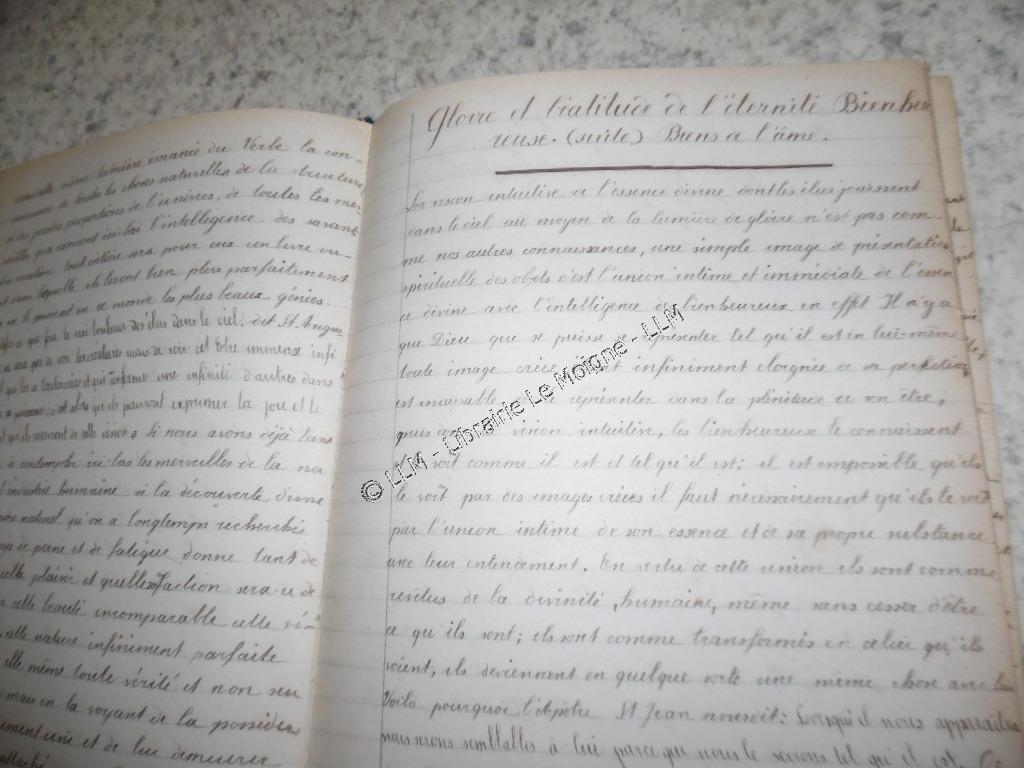 même lumière émanée du Verbe la con-
de toutes les choses naturelles de la structure
et des justes proportions de l'univers, de toutes les mer-
que savent ici-bas l'intelligence des savant
tout entière sera pour eux un livre ou-
laquelle ils liront bien plus parfaitement
en ce monde les plus beaux génies.
que fait le vrai bonheur des élus dans le ciel, dit St Augus-
mais de voir cet Etre immense infi
et qui renferme une infinité d'autres dans
c'est alors qu'ils pourront exprimer la joie et le
de cette vision. Si nous avons déjà tant
à contempler ici-bas les merveilles de la na
l'industrie humaine si la découverte d'une
naturel qu'on a longtemps recherchée
de peine et de fatigue donne tant de
plaisir et quelle satisfaction sera-ce de
cette beauté incomparable cette vé-
cette nature infiniment parfaite
elle même toute vérité et non seu
mais en la voyant de la posséder
et de lui demeurer
Gloire et béatitude de l'éternité Bienheu
reuse. (suite) Biens de l'âme.
La vision intuitive de l'essence divine dont les élus jouissent
dans le ciel au moyen de la lumière de gloire n'est pas com-
me nos autres connaissances, une simple image de présentation
spirituelle des objets c'est l'union intime et immédiate de l'essen
ce divine avec l'intelligence des bienheureux en effet Il n'y a
que Dieu que se puisse se représenter tel qu'il est en lui-même
toute image créée est infiniment éloignée de sa perfection
est incapable représenter dans la plénitude de son être,
puis vision intuitive, les bienheureux le connaissent
Le voit comme il est et tel qu'il est; il est impossible qu'ils
le voit par des images créées il faut nécessairement qu'ils le voit
par l'union intime de son essence et de sa propre substance
avec leur entendement. En vertu de cette union ils sont comme
revêtus de la divinité, humaine, même sans cesser d'être
ce qu'ils sont; ils sont comme transformés en celui qu'ils
voient, ils deviennent en quelque sorte une même chose avec lui
Voilà pourquoi l'apôtre St Jean nous dit: Lorsqu'il nous apparaitra
nous serons semblables à lui parce que nous le verrons tel qu'il est.
© LLM - Librairie Le Moigne - LLM